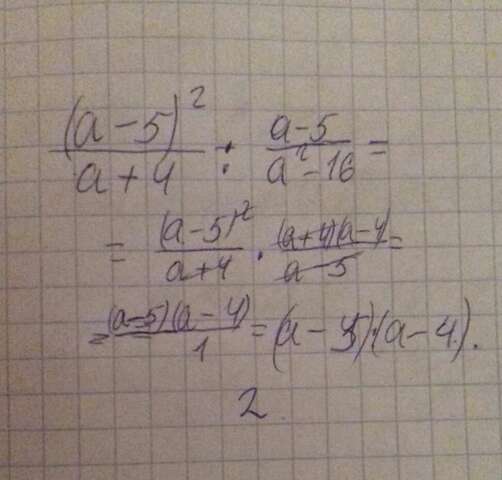 (a-5)²/(a+4) : (a-5)/(a²-16) =
= (a-5)²/(a+4) · (a+4)(a-4)/(a-5) =
= (a-5)(a-4)/1 = (a-5)·(a-4).
2